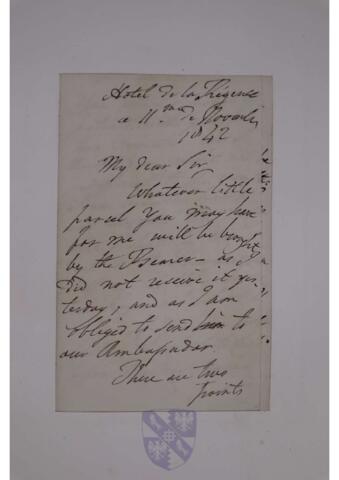 Hotel de la Régence
a 11.me de Novembr
1842
My dear Sir
Whatever little
parcel you may have
for me will be brought
by the Bearer - as I
did not receive it yes-
terday, and as I am
obliged to send him to
our Ambassador
There are two
points